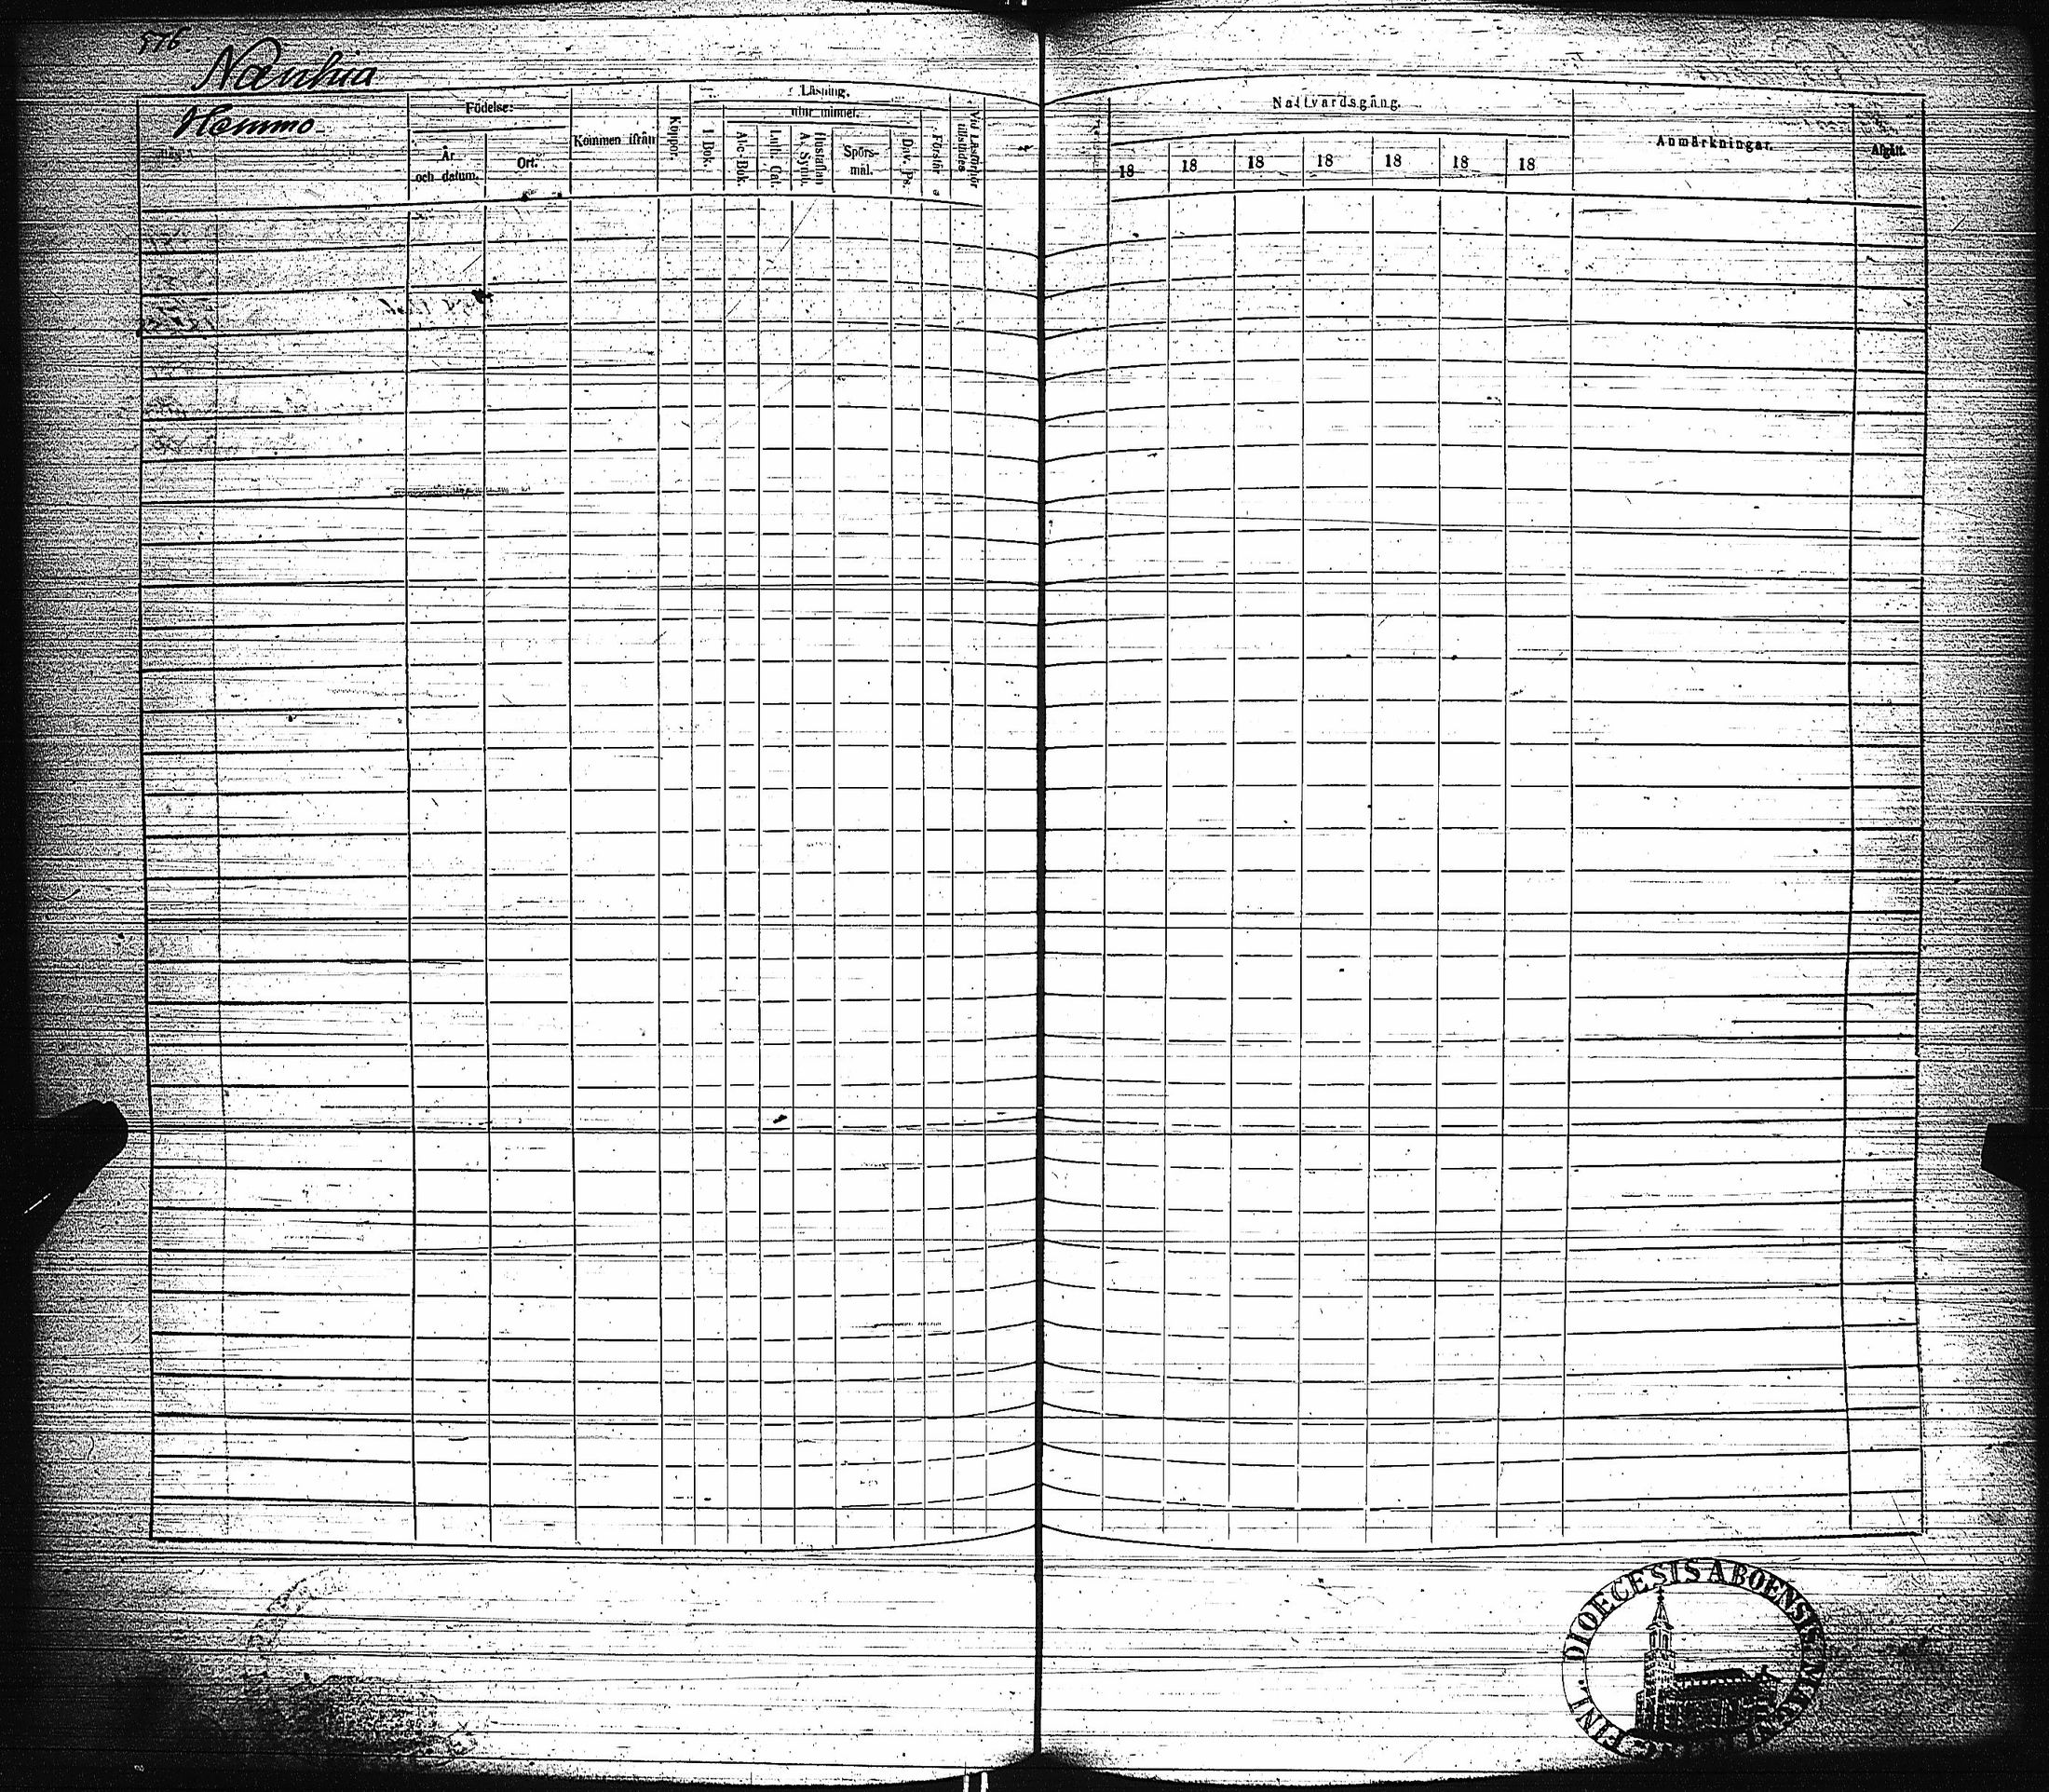 576.
Nanhia
Hemmo
Födelse:
År
och datum.
Ort.
Kommen ifrån
Koppor.
Läsning.
utur minnet.
I Bok.
Abc-Bok.
Luth. Cat.
Hustaflan
A. Symb.
Spörs-
mål.
Dav. Ps.
Förstår
Vid Läsförhör
tillstädes
Nattvardsgång.
18
18
18
18
18
18
18
Anmärkningar.
Afgått.
FINL. DIOECESIS ABOENSIS